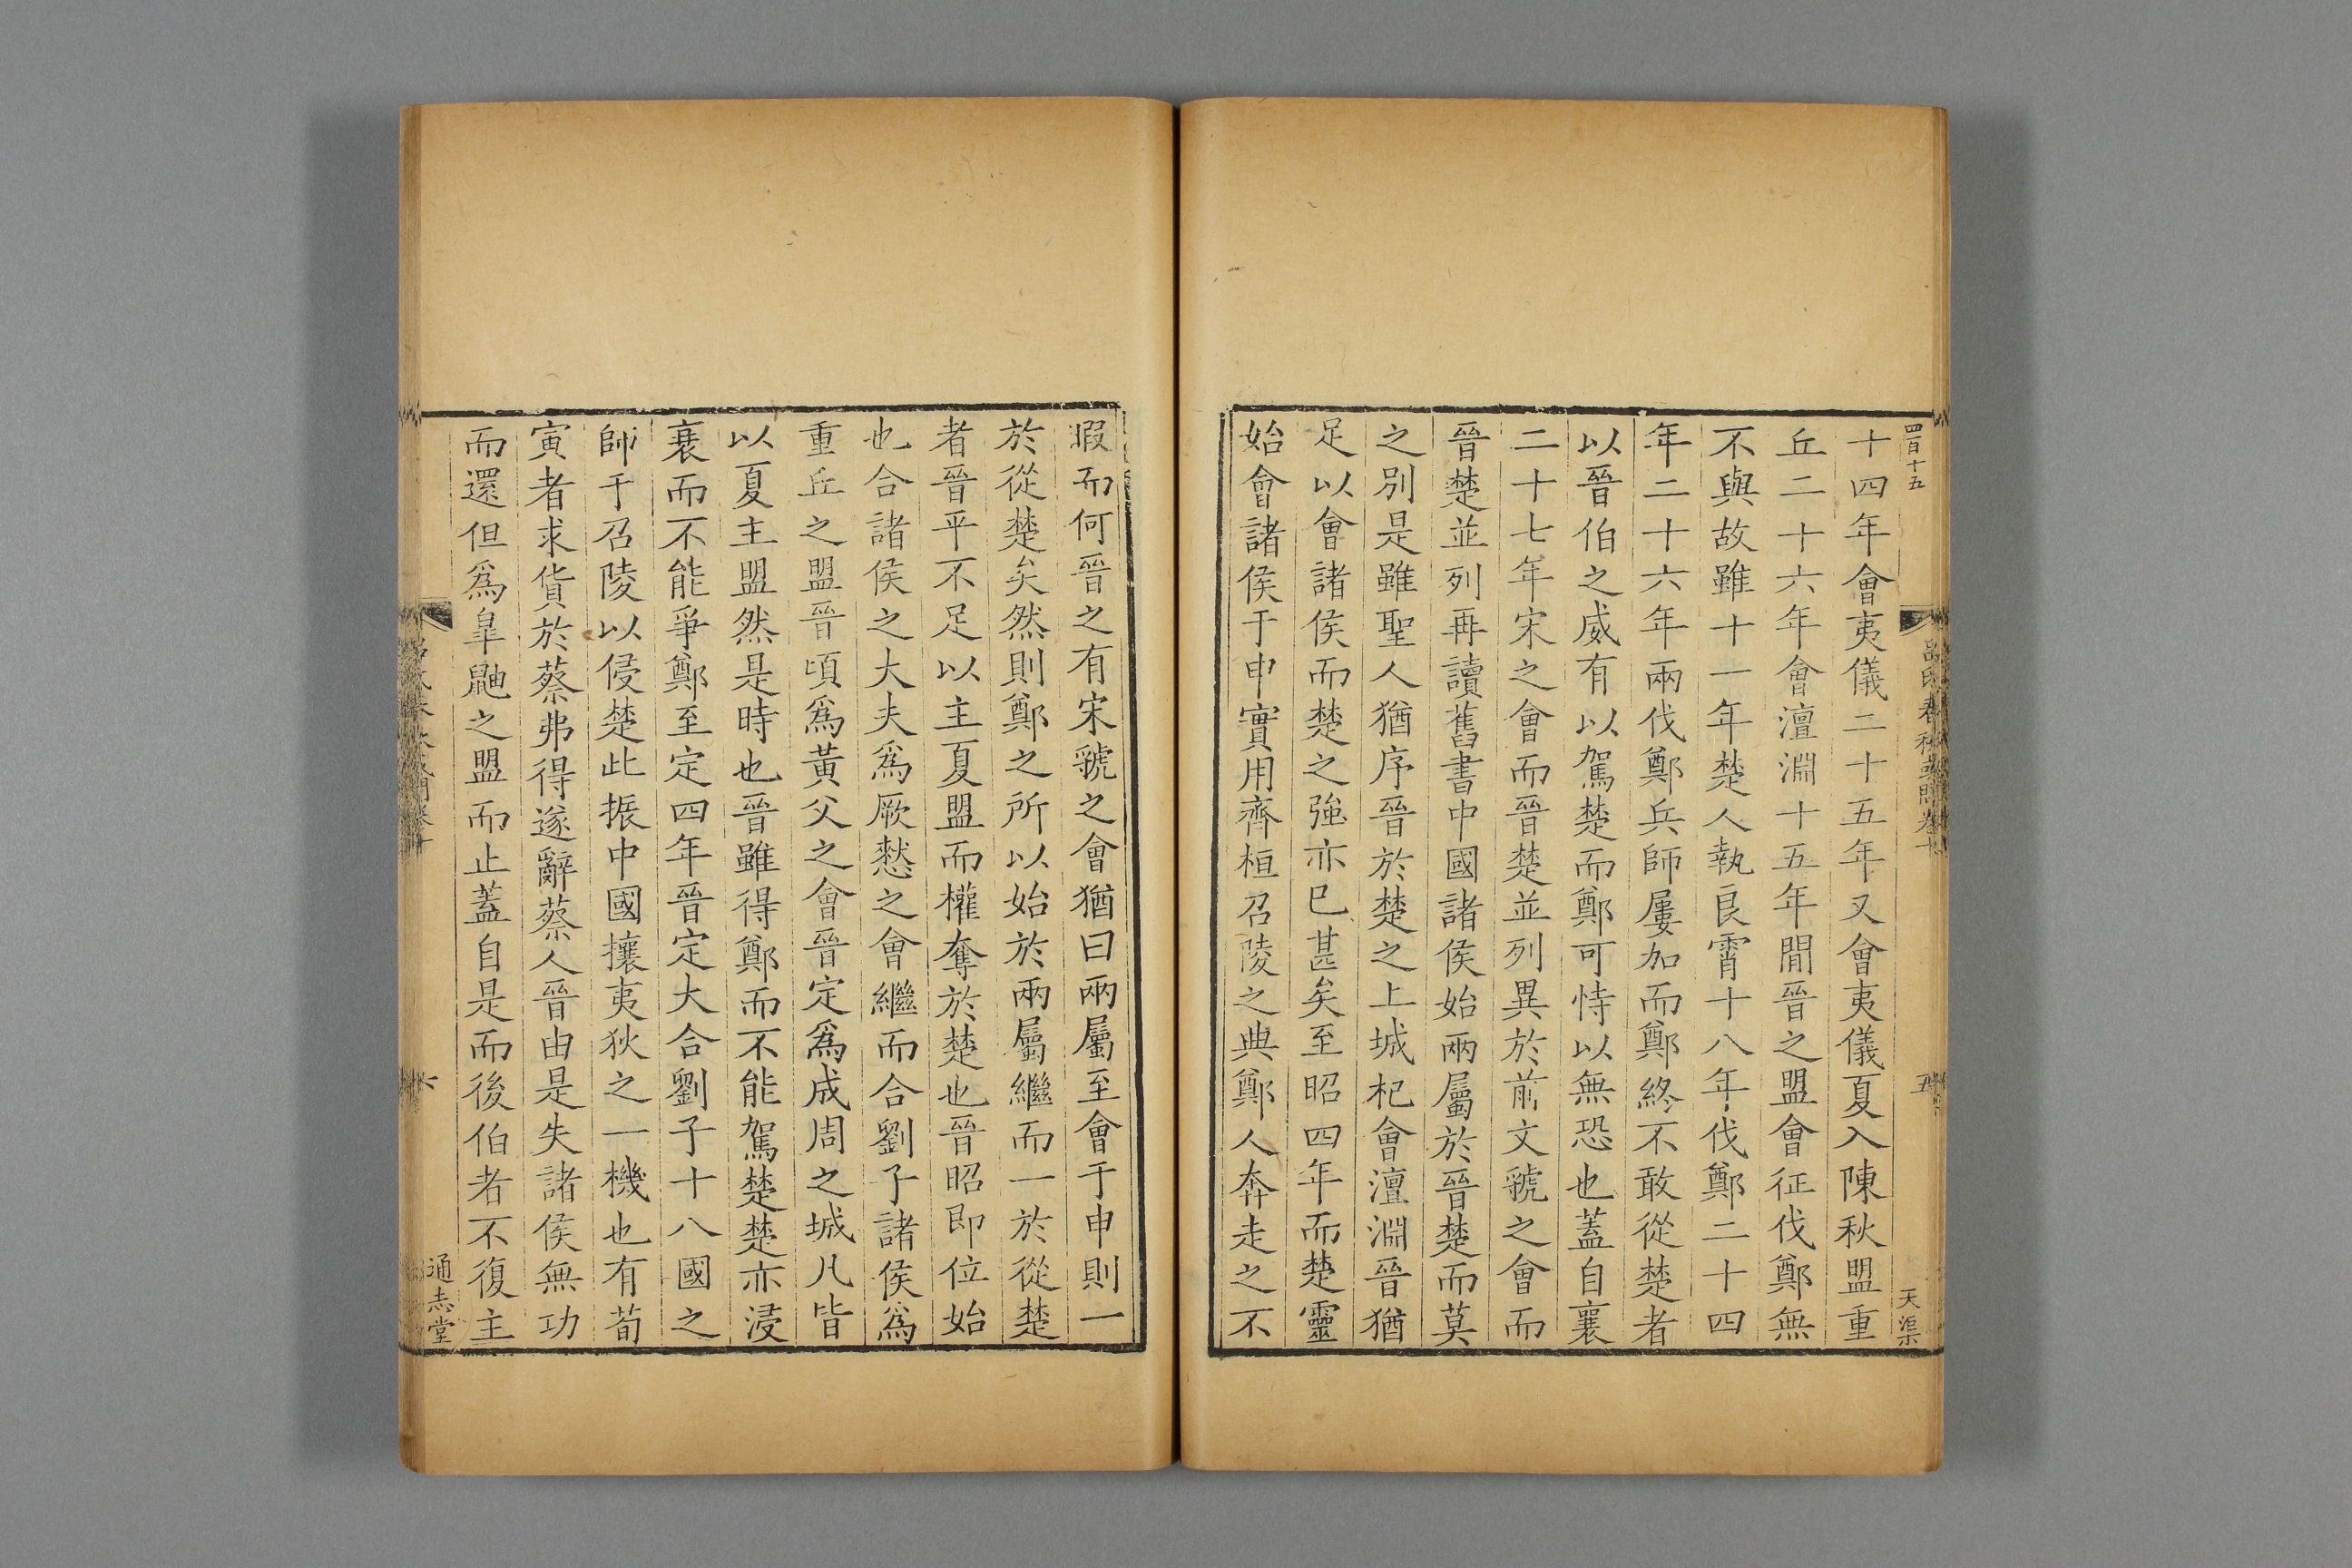 四百十五
呂氏春秋或問卷十
五
天渠
十四年會夷儀二十五年又會夷儀夏入陳秋盟重
丘二十六年會澶淵十五年間晉之盟會征伐鄭無
不與故雖十一年楚人執良霄十八年伐鄭二十四
年二十六年兩伐鄭兵師屢加而鄭終不敢從楚者
以晉伯之威有以駕楚而鄭可恃以無恐也蓋自襄
二十七年宋之會而晉楚並列異於前文虢之會而
晉楚並列再讀舊書中國諸侯始兩屬於晉楚而莫
之別是雖聖人猶序晉於楚之上城杞會澶淵晉猶
足以會諸侯而楚之強亦已甚矣至昭四年而楚靈
始會諸侯于申實用齊桓召陵之典鄭人奔走之不
暇而何晉之有宋虢之會猶曰兩屬至會于申則一
於從楚矣然則鄭之所以始於兩屬繼而一於從楚
者晉平不足以主夏盟而權奪於楚也晉昭即位始
也合諸侯之大夫為厥憖之會繼而合劉子諸侯為
重丘之盟晉頃為黃父之會晉定為成周之城凡皆
以夏主盟然是時也晉雖得鄭而不能駕楚楚亦浸
衰而不能爭鄭至定四年晉定大合劉子十八國之
師于召陵以侵楚此振中國攘夷狄之一機也有荀
寅者求貨於蔡弗得遂辭蔡人晉由是失諸侯無功
而還但為皐鼬之盟而止蓋自是而後伯者不復主
六
通志堂